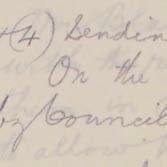 (4) Sendin
On the
by Council